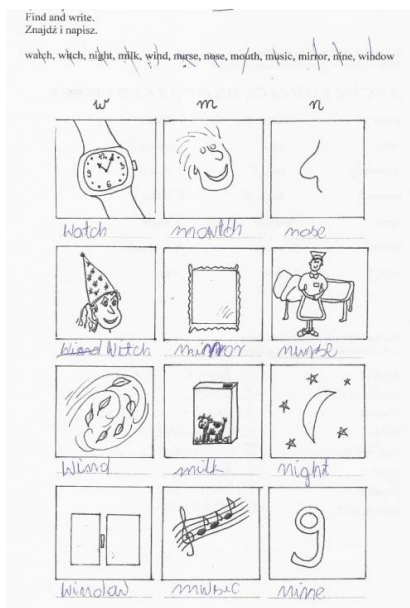 Find and write.
Znajdź i napisz.
watch, witch, night, milk, wind, nurse, nose, mouth, music, mirror, nine, window
w m n
Watch mowtch nose
Wind Witch mirror nurse
Wind milk night
Window muwsic nine